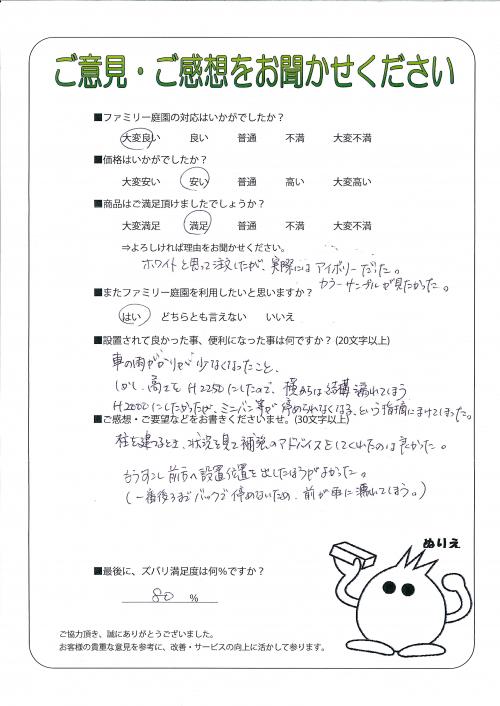 ご意見・ご感想をお聞かせください
■ファミリー庭園の対応はいかがでしたか？
大変良い 良い 普通 不満 大変不満
■価格はいかがでしたか？
大変安い 安い 普通 高い 大変高い
■商品はご満足頂けましたでしょうか？
大変満足 満足 普通 不満 大変不満
⇒よろしければ理由をお聞かせください。
ホワイトと思って注文したが、実際にはアイボリーだった。
カラーサンプルが見たかった。
■またファミリー庭園を利用したいと思いますか？
はい どちらとも言えない いいえ
■設置されて良かった事、便利になった事は何ですか？(20文字以上)
車の雨がかりが少なくなったこと、
しかし、高さをH2250にしたので、横からは結構濡れてしまう
H2000にしたかったが、ミニバン等が停められなくなる、という指摘にまけてしまった。
■ご感想・ご要望などをお書きくださいませ。(30文字以上)
柱を建てるとき、状況を見て補強のアドバイスをしてくれたのは良かった。
もうすこし前方へ設置位置を出したほうがよかった。
(一番後ろまでバックで停めないため、前が車に濡れてしまう。)
■最後に、ズバリ満足度は何%ですか？
80 %
ぬりえ
ご協力頂き、誠にありがとうございました。
お客様の貴重な意見を参考に、改善・サービスの向上に活かして参ります。